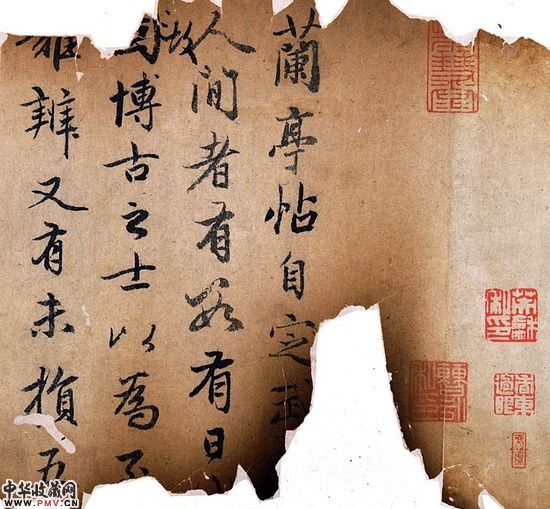 蘭亭帖自定武
人間者有數有日
故
博古之士以為至
難辨又有未損五
中华收藏网
www.PMV.CN